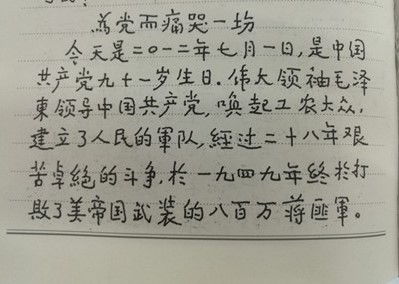 为党而痛哭一场
今天是二〇一二年七月一日,是中国
共产党九十一岁生日.伟大领袖毛泽
東领导中国共产党,唤起工农大众,
建立了人民的軍队,經过二十八年艰
苦卓絕的斗争,於一九四九年終於打
敗了美帝国武装的八百万蒋匪軍。